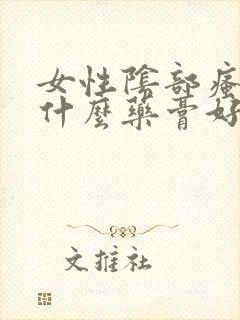 女性陰部瘙
什麼藥膏好
文推社